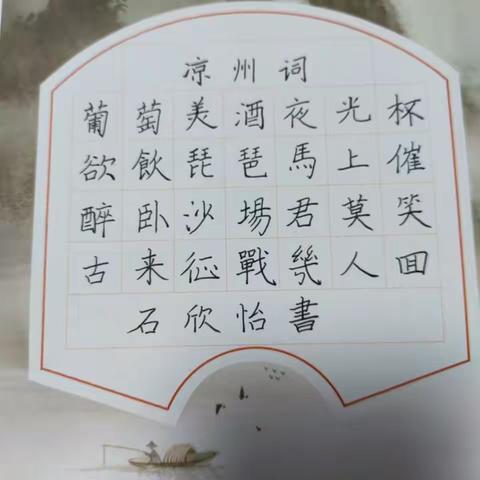 凉州词
葡萄美酒夜光杯
欲飲琵琶馬上催
醉卧沙場君莫笑
古来征戰幾人囬
石欣怡書